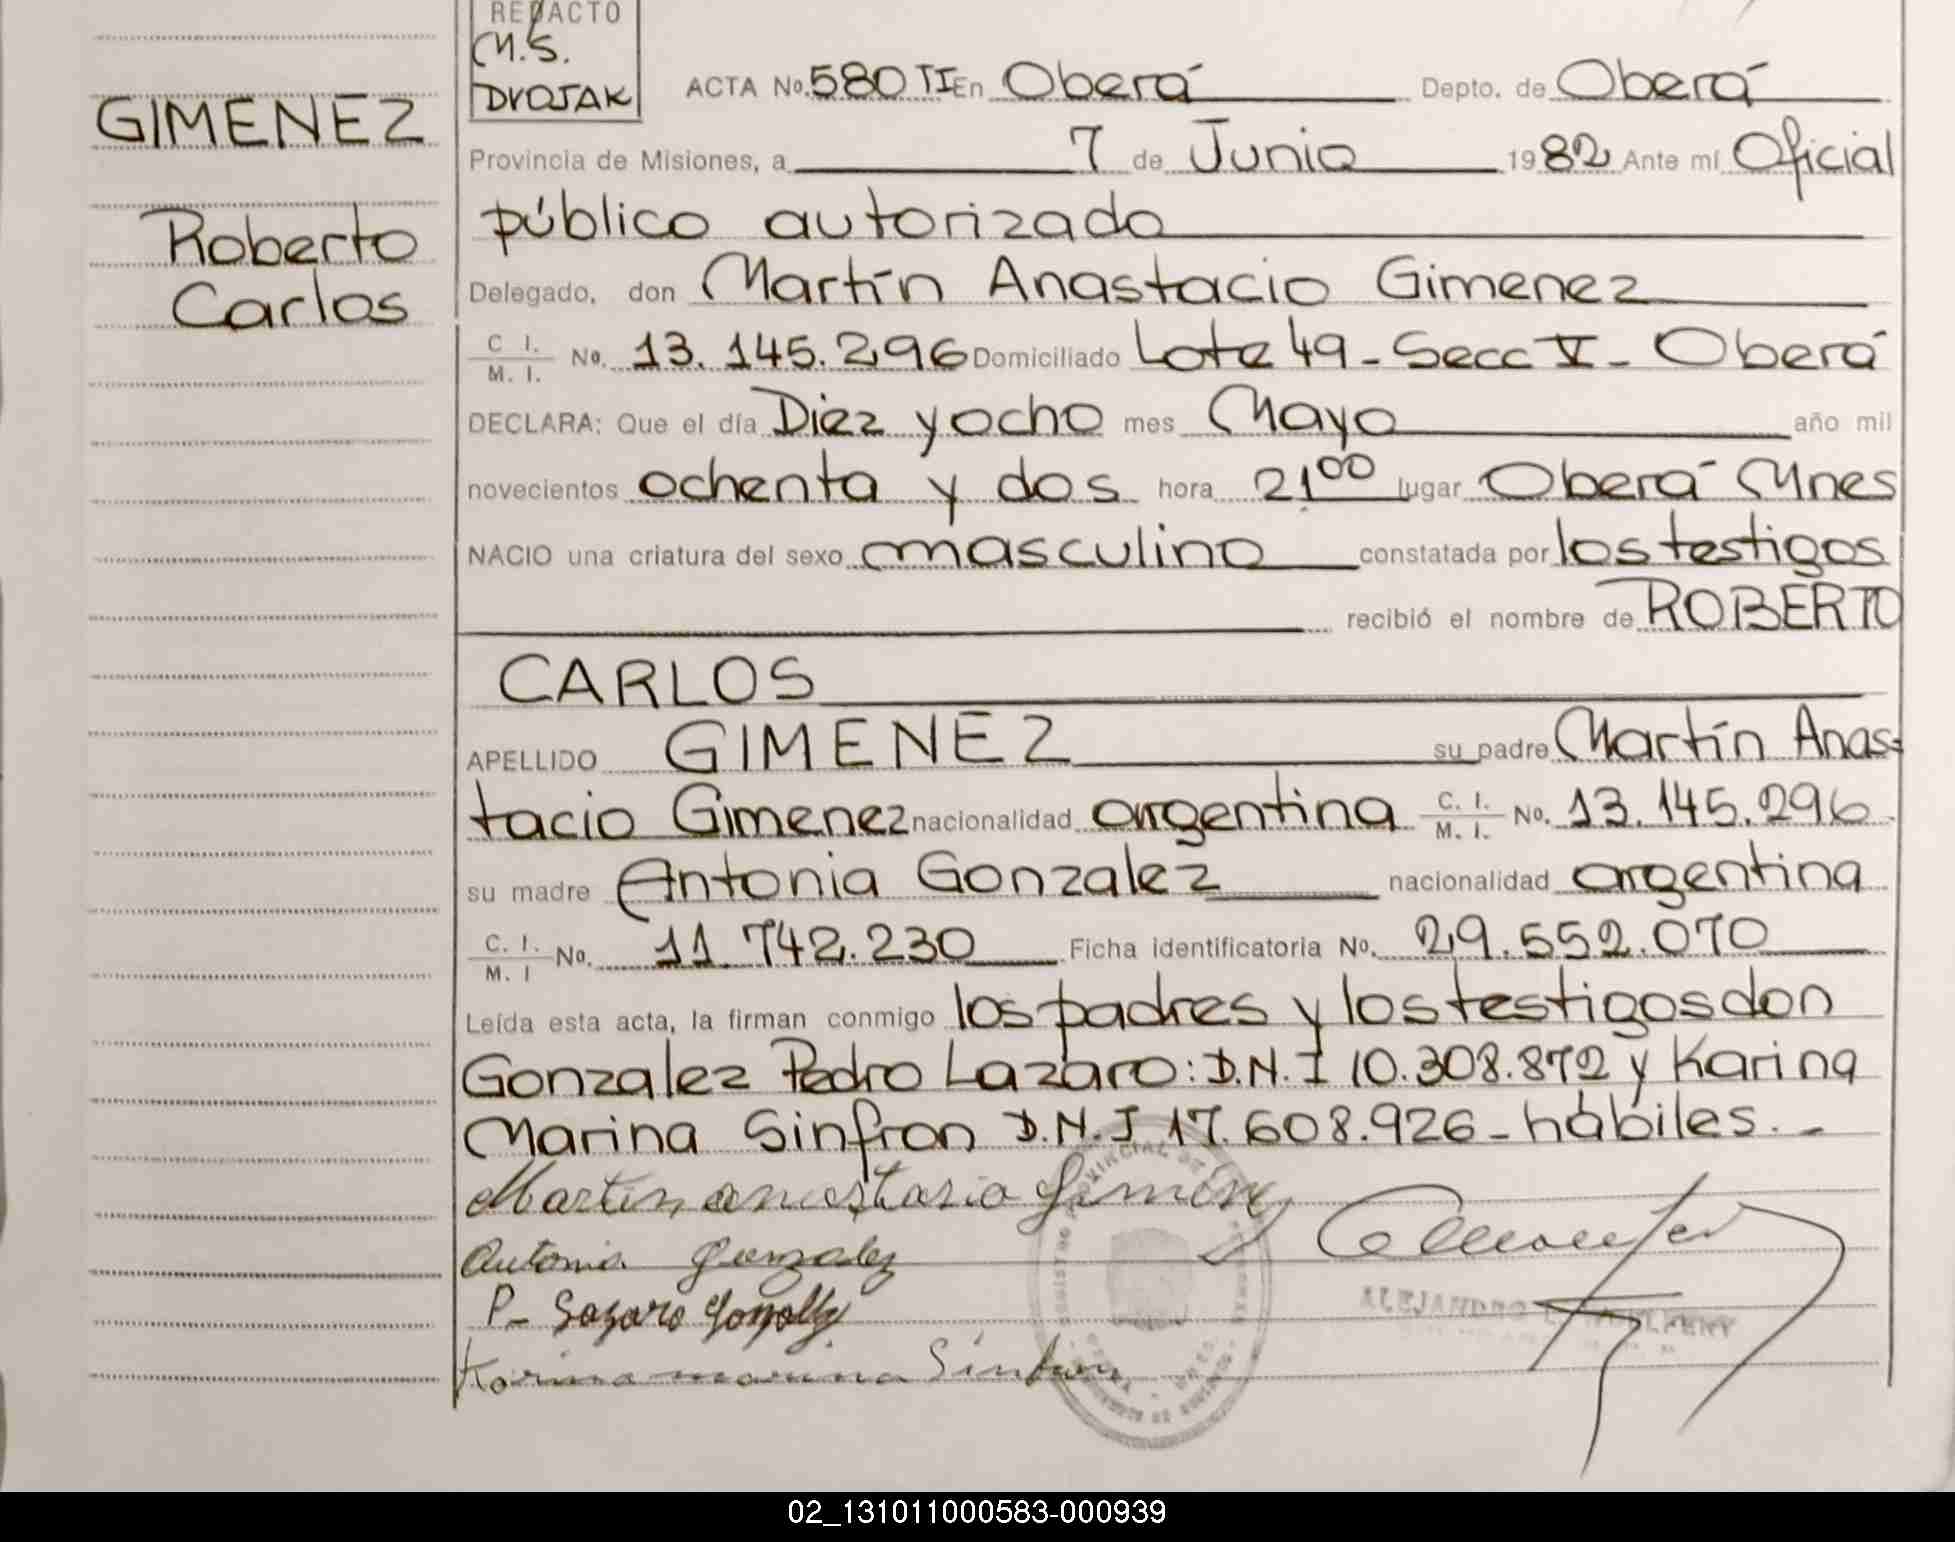 REDACTO
M.S.
DVOJAK
GIMENEZ
Roberto
Carlos
ACTA No. 580 TI En Oberá Depto. de Oberá
Provincia de Misiones, a 7 de Junio 1982 Ante mí Oficial
público autorizado
Delegado, don Martín Anastacio Gimenez
C I. M. I. No. 13.145.296 Domiciliado Lote 49 - Secc V - Oberá
DECLARA: Que el día Diez y ocho mes Mayo año mil
novecientos ochenta y dos hora 21 00 lugar Oberá Mnes
NACIO una criatura del sexo masculino constatada por los testigos
recibió el nombre de ROBERTO
CARLOS
APELLIDO GIMENEZ su padre Martín Anas-
tacio Gimenez nacionalidad argentina C. I. M. I. No. 13.145.296
su madre Antonia Gonzalez nacionalidad argentina
C. I. M. I No. 11.742.230 Ficha identificatoria No. 29.552.070
Leída esta acta, la firman conmigo los padres y los testigos don
Gonzalez Pedro Lazaro: D.N.I 10.308.872 y Karina
Marina Sinfron D.N.I 17.608.926 - hábiles. -
Martin anastasio Gimenez
Antonia Gonzalez
P- Lazaro Gonzalez
Karina marina Sinfron
ALEJANDRO
02_131011000583-000939